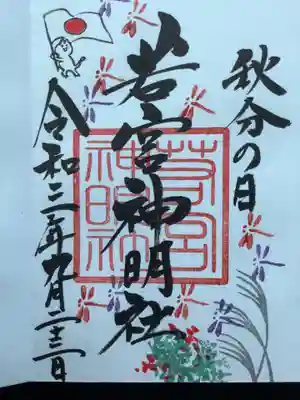 秋分の日
若宮神明社
令和三年九月二十三日
若宮神明社